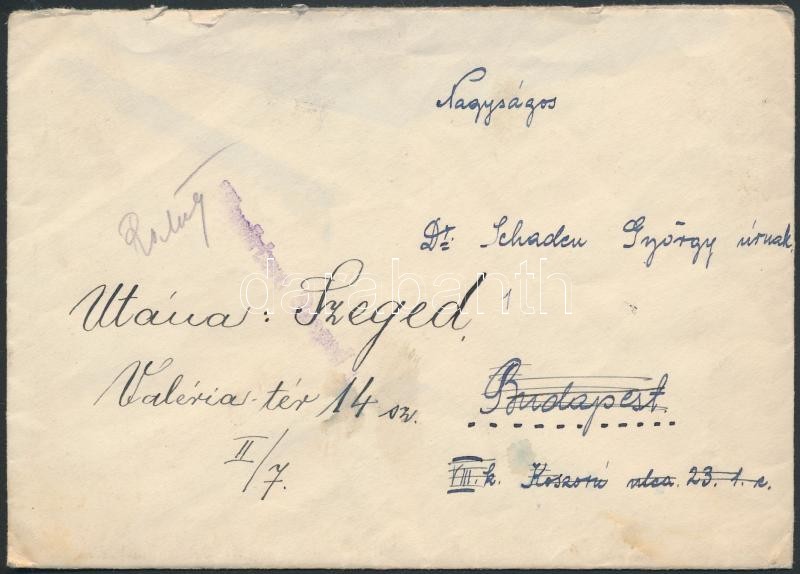 Nagyságos
Dr. Schaden György úrnak
Budapest
VIII. k. Koszorú utca. 23. 1. e.
Utána: Szeged,
Valéria-tér 14 sz.
II/7.
darabanth